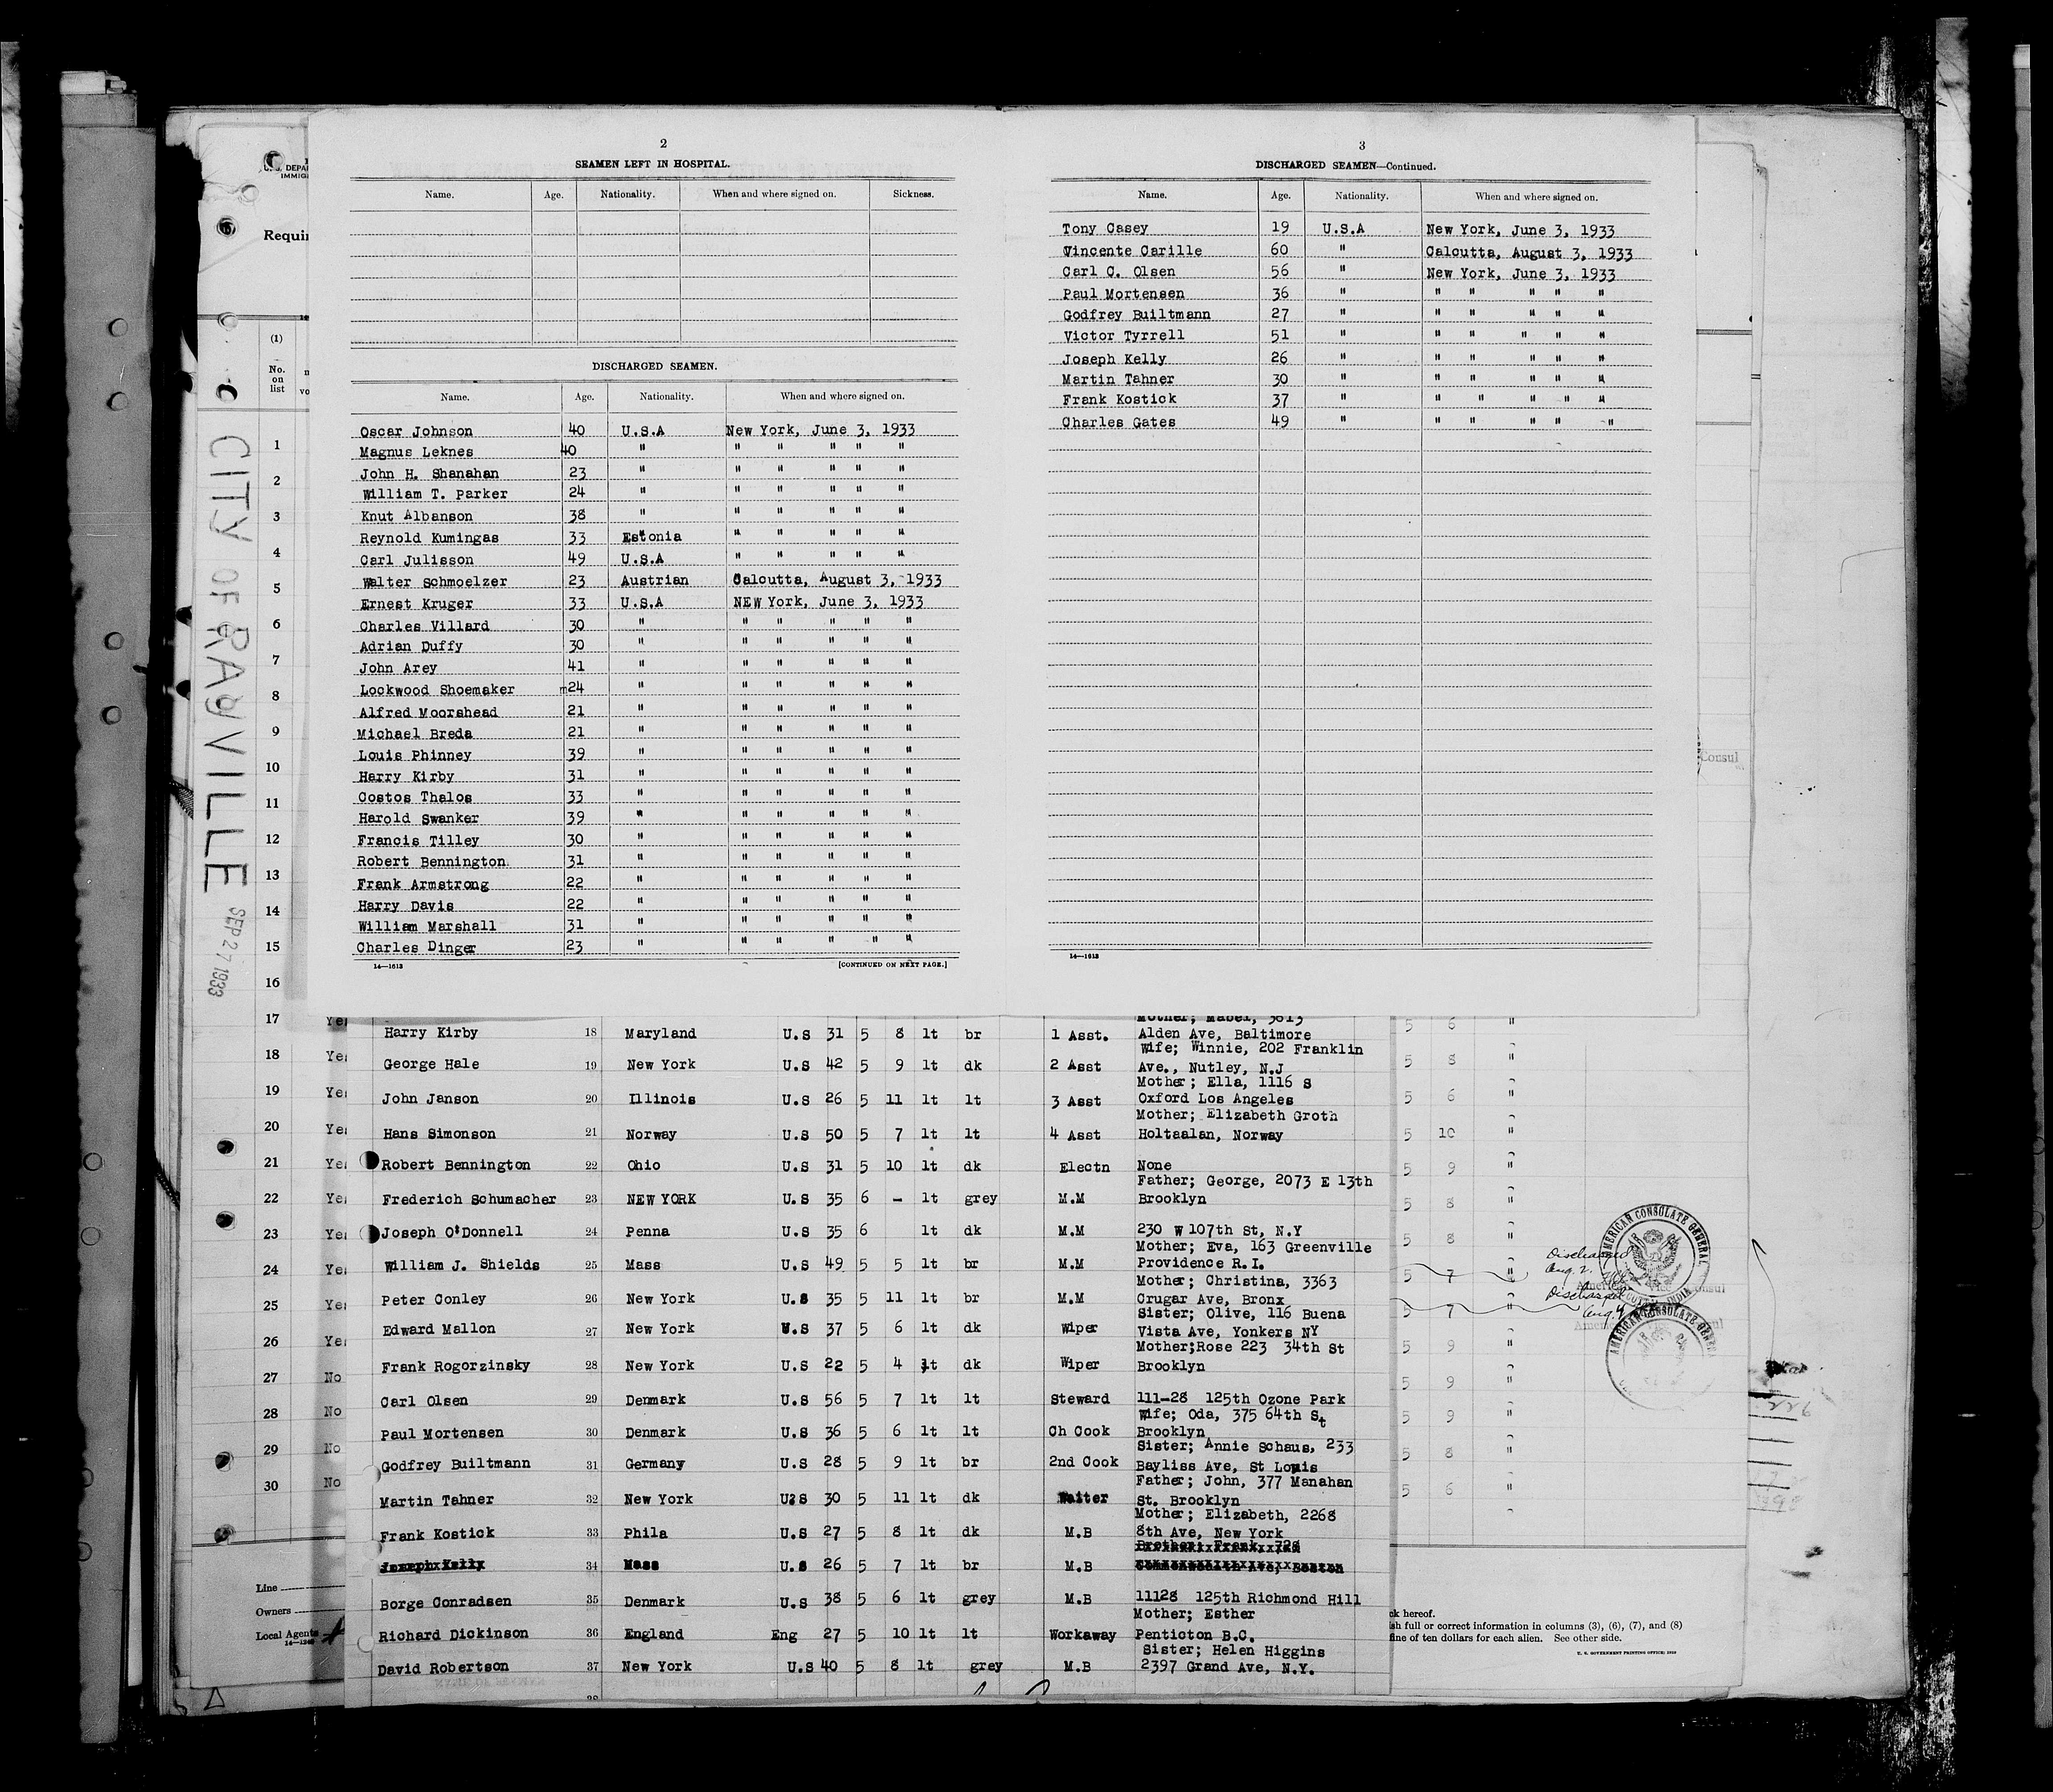 2
SEAMEN LEFT IN HOSPITAL.
Name. Age. Nationality. When and where signed on. Sickness.
DISCHARGED SEAMEN.
Name. Age. Nationality. When and where signed on.
Oscar Johnson 40 U.S.A New York, June 3, 1933
Magnus Leknes 40 " " " " " "
John H. Shanahan 23 " " " " " "
William T. Parker 24 " " " " " "
Knut Albanson 38 " " " " " "
Reynold Kumingas 33 Estonia " " " " "
Carl Julisson 49 U.S.A " " " " "
Walter Schmoelzer 23 Austrian Calcutta, August 3, 1933
Ernest Kruger 33 U.S.A NEW York, June 3, 1933
Charles Villard 30 " " " " " "
Adrian Duffy 30 " " " " " "
John Arey 41 " " " " " "
Lockwood Shoemaker 24 " " " " " "
Alfred Moorshead 21 " " " " " "
Michael Breda 21 " " " " " "
Louis Phinney 39 " " " " " "
Harry Kirby 31 " " " " " "
Costos Thalos 33 " " " " " "
Harold Swanker 39 " " " " " "
Francis Tilley 30 " " " " " "
Robert Bennington 31 " " " " " "
Frank Armstrong 22 " " " " " "
Harry Davis 22 " " " " " "
William Marshall 31 " " " " " "
Charles Dinger 23 " " " " " "
14—1613 [CONTINUED ON NEXT PAGE.]
3
DISCHARGED SEAMEN—Continued.
Name. Age. Nationality. When and where signed on.
Tony Casey 19 U.S.A New York, June 3, 1933
Vincente Carille 60 " Calcutta, August 3, 1933
Carl C. Olsen 56 " New York, June 3, 1933
Paul Mortensen 36 " " " " " "
Godfrey Builtmann 27 " " " " " "
Victor Tyrrell 51 " " " " " "
Joseph Kelly 26 " " " " " "
Martin Tahner 30 " " " " " "
Frank Kostick 37 " " " " " "
Charles Gates 49 " " " " " "
14—1613
U. S. DEPA
IMMIG
Requir
(1)
No.
on
list
vo
1
2
3
4
5
6
7
8
9
10
11
12
13
14
15
16
17
18
19
20
21
22
23
24
25
26
27
28
29
30
CITY OF RAYVILLE
SEP 27 1933
Mother; Mabel, 3613
Harry Kirby 18 Maryland U.S 31 5 8 lt br 1 Asst. Alden Ave, Baltimore
Wife; Winnie, 202 Franklin
George Hale 19 New York U.S 42 5 9 lt dk 2 Asst Ave., Nutley, N.J
Mother; Ella, 1116 S
John Janson 20 Illinois U.S 26 5 11 lt lt 3 Asst Oxford Los Angeles
Mother; Elizabeth Groth
Hans Simonson 21 Norway U.S 50 5 7 lt lt 4 Asst Holtaalan, Norway
Robert Bennington 22 Ohio U.S 31 5 10 lt dk Electn None
Father; George, 2073 E 13th
Frederich Schumacher 23 NEW YORK U.S 35 6 – lt grey M.M Brooklyn
Joseph O'Donnell 24 Penna U.S 35 6 lt dk M.M 230 W 107th St, N.Y
Mother; Eva, 163 Greenville
William J. Shields 25 Mass U.S 49 5 5 lt br M.M Providence R.I.
Mother; Christina, 3363
Peter Conley 26 New York U.S 35 5 11 lt br M.M Crugar Ave, Bronx
Sister; Olive, 116 Buena
Edward Mallon 27 New York U.S 37 5 6 lt dk Wiper Vista Ave, Yonkers NY
Mother;Rose 223 34th St
Frank Rogorzinsky 28 New York U.S 22 5 4 lt dk Wiper Brooklyn
Carl Olsen 29 Denmark U.S 56 5 7 lt lt Steward 111-28 125th Ozone Park
Wife; Oda, 375 64th St
Paul Mortensen 30 Denmark U.S 36 5 6 lt lt Ch Cook Brooklyn
Sister; Annie Schaus, 233
Godfrey Builtmann 31 Germany U.S 28 5 9 lt br 2nd Cook Bayliss Ave, St Louis
Father; John, 377 Manahan
Martin Tahner 32 New York U.S 30 5 11 lt dk Waiter St. Brooklyn
Mother; Elizabeth, 2268
Frank Kostick 33 Phila U.S 27 5 8 lt dk M.B 8th Ave, New York
Brother; Frank, 728
Joseph Kelly 34 Mass U.S 26 5 7 lt br M.B Commonwealth Ave, Boston
Borge Conradsen 35 Denmark U.S 38 5 6 lt grey M.B 11128 125th Richmond Hill
Mother; Esther
Richard Dickinson 36 England Eng 27 5 10 lt lt Workaway Penticton B.C.
Sister; Helen Higgins
David Robertson 37 New York U.S 40 5 8 lt grey M.B 2397 Grand Ave, N.Y.
38
5 6 "
5 8 "
5 6 "
5 10 "
5 9 "
5 8 "
5 8 "
5 7 "
5 7 "
5 9 "
5 9 "
5 9 "
5 8 "
5 6 "
Discharged
Aug. 2.
Discharged
Aug. 4
AMERICAN CONSULATE GENERAL
CALCUTTA, INDIA
American Vice Consul
AMERICAN CONSULATE GENERAL
Consul
Line
Owners
Local Agents
14—1240
ck hereof.
ish full or correct information in columns (3), (6), (7), and (8)
fine of ten dollars for each alien. See other side.
U. S. GOVERNMENT PRINTING OFFICE: 1929